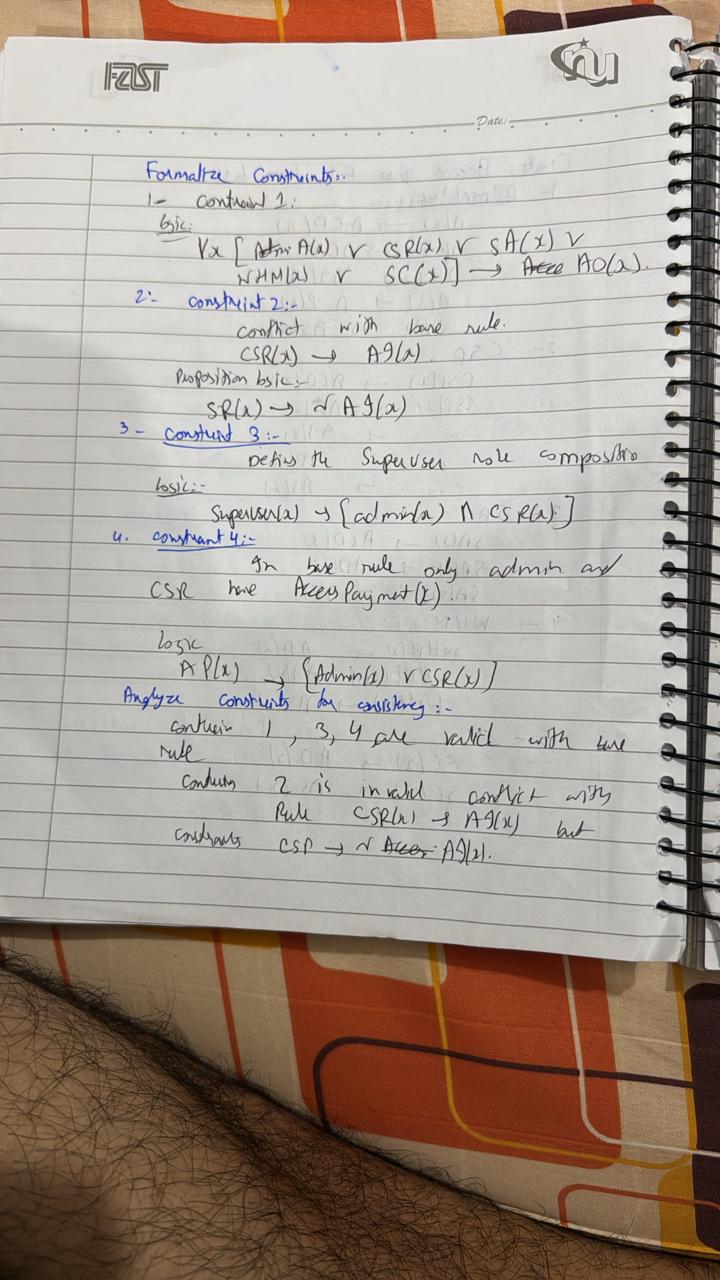 FAST
nu
Date:
Formalize Constraints:.
1- contraint 1:
logic:
∀x [ A(x) ∨ CSR(x) ∨ SA(x) ∨
WHM(x) ∨ SC(x)] → AO(x).
2:- constraint 2:-
conflict with base rule.
CSR(x) → AI(x).
Proposition logic:-
SR(x) → ~ AI(x)
3- Constraint 3:-
Defins the Superuser role composition
Logic:-
Superuser(x) → [admin(x) ∧ CSR(x)]
4. constraint 4:-
In base rule only admin and
CSR have AccessPayment(x).
Logic
AP(x) → [Admin(x) ∨ CSR(x)]
Analyze constraints for consistency:-
1, 3, 4 are valid with base
rule
2 is invalid conflict with
Rule CSR(x) → AI(x) but
constraints CSR → ~ AI(x).